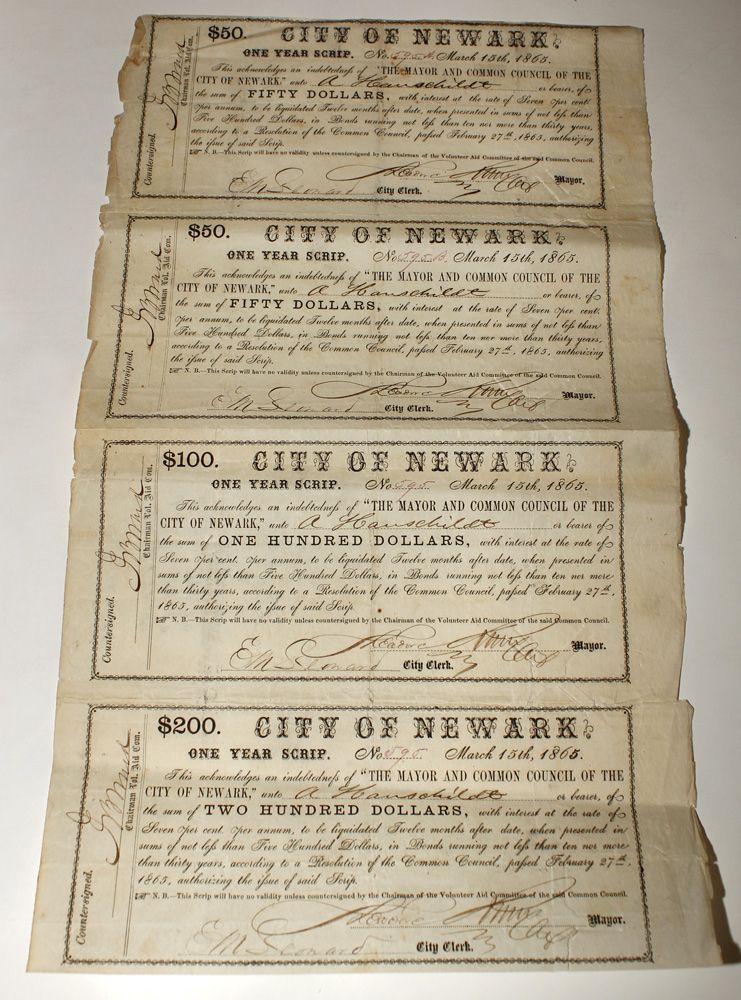 $50. CITY OF NEWARK.
ONE YEAR SCRIP. No. 595 A March 15th, 1865.
This acknowledges an indebtedneſs of "THE MAYOR AND COMMON COUNCIL OF THE
CITY OF NEWARK," unto A Hanschildt or bearer, of
the sum of FIFTY DOLLARS, with interest at the rate of Seven per cent.
per annum, to be liquidated Twelve months after date, when presented in sums of not leſs than
Five Hundred Dollars, in Bonds running not leſs than ten nor more than thirty years,
according to a Resolution of the Common Council, paſsed February 27th, 1865, authorizing
the iſsue of said Scrip.
☞ N. B.—This Scrip will have no validity unless countersigned by the Chairman of the Volunteer Aid Committee of the said Common Council.
E M Leonard City Clerk. Mayor.
Countersigned. Chairman Vol. Aid Com.
$50. CITY OF NEWARK.
ONE YEAR SCRIP. No. 595 B March 15th, 1865.
This acknowledges an indebtedneſs of "THE MAYOR AND COMMON COUNCIL OF THE
CITY OF NEWARK," unto A Hanschildt or bearer, of
the sum of FIFTY DOLLARS, with interest at the rate of Seven per cent.
per annum, to be liquidated Twelve months after date, when presented in sums of not leſs than
Five Hundred Dollars, in Bonds running not leſs than ten nor more than thirty years,
according to a Resolution of the Common Council, paſsed February 27th, 1865, authorizing
the iſsue of said Scrip.
☞ N. B.—This Scrip will have no validity unless countersigned by the Chairman of the Volunteer Aid Committee of the said Common Council.
E M Leonard City Clerk. Mayor.
Countersigned. Chairman Vol. Aid Com.
$100. CITY OF NEWARK.
ONE YEAR SCRIP. No. 595 March 15th, 1865.
This acknowledges an indebtedneſs of "THE MAYOR AND COMMON COUNCIL OF THE
CITY OF NEWARK," unto A Hanschildt or bearer of
the sum of ONE HUNDRED DOLLARS, with interest at the rate of
Seven per cent. per annum, to be liquidated Twelve months after date, when presented in
sums of not leſs than Five Hundred Dollars, in Bonds running not leſs than ten nor more
than thirty years, according to a Resolution of the Common Council, paſsed February 27th,
1865, authorizing the iſsue of said Scrip.
☞ N. B.—This Scrip will have no validity unless countersigned by the Chairman of the Volunteer Aid Committee of the said Common Council.
E M Leonard City Clerk. Mayor.
Countersigned. Chairman Vol. Aid Com.
$200. CITY OF NEWARK.
ONE YEAR SCRIP. No. 595 March 15th, 1865.
This acknowledges an indebtedneſs of "THE MAYOR AND COMMON COUNCIL OF THE
CITY OF NEWARK," unto A Hanschildt or bearer, of
the sum of TWO HUNDRED DOLLARS, with interest at the rate of
Seven per cent. per annum, to be liquidated Twelve months after date, when presented in
sums of not leſs than Five Hundred Dollars, in Bonds running not leſs than ten nor more
than thirty years, according to a Resolution of the Common Council, paſsed February 27th,
1865, authorizing the iſsue of said Scrip.
☞ N. B.—This Scrip will have no validity unless countersigned by the Chairman of the Volunteer Aid Committee of the said Common Council.
E M Leonard City Clerk. Mayor.
Countersigned. Chairman Vol. Aid Com.